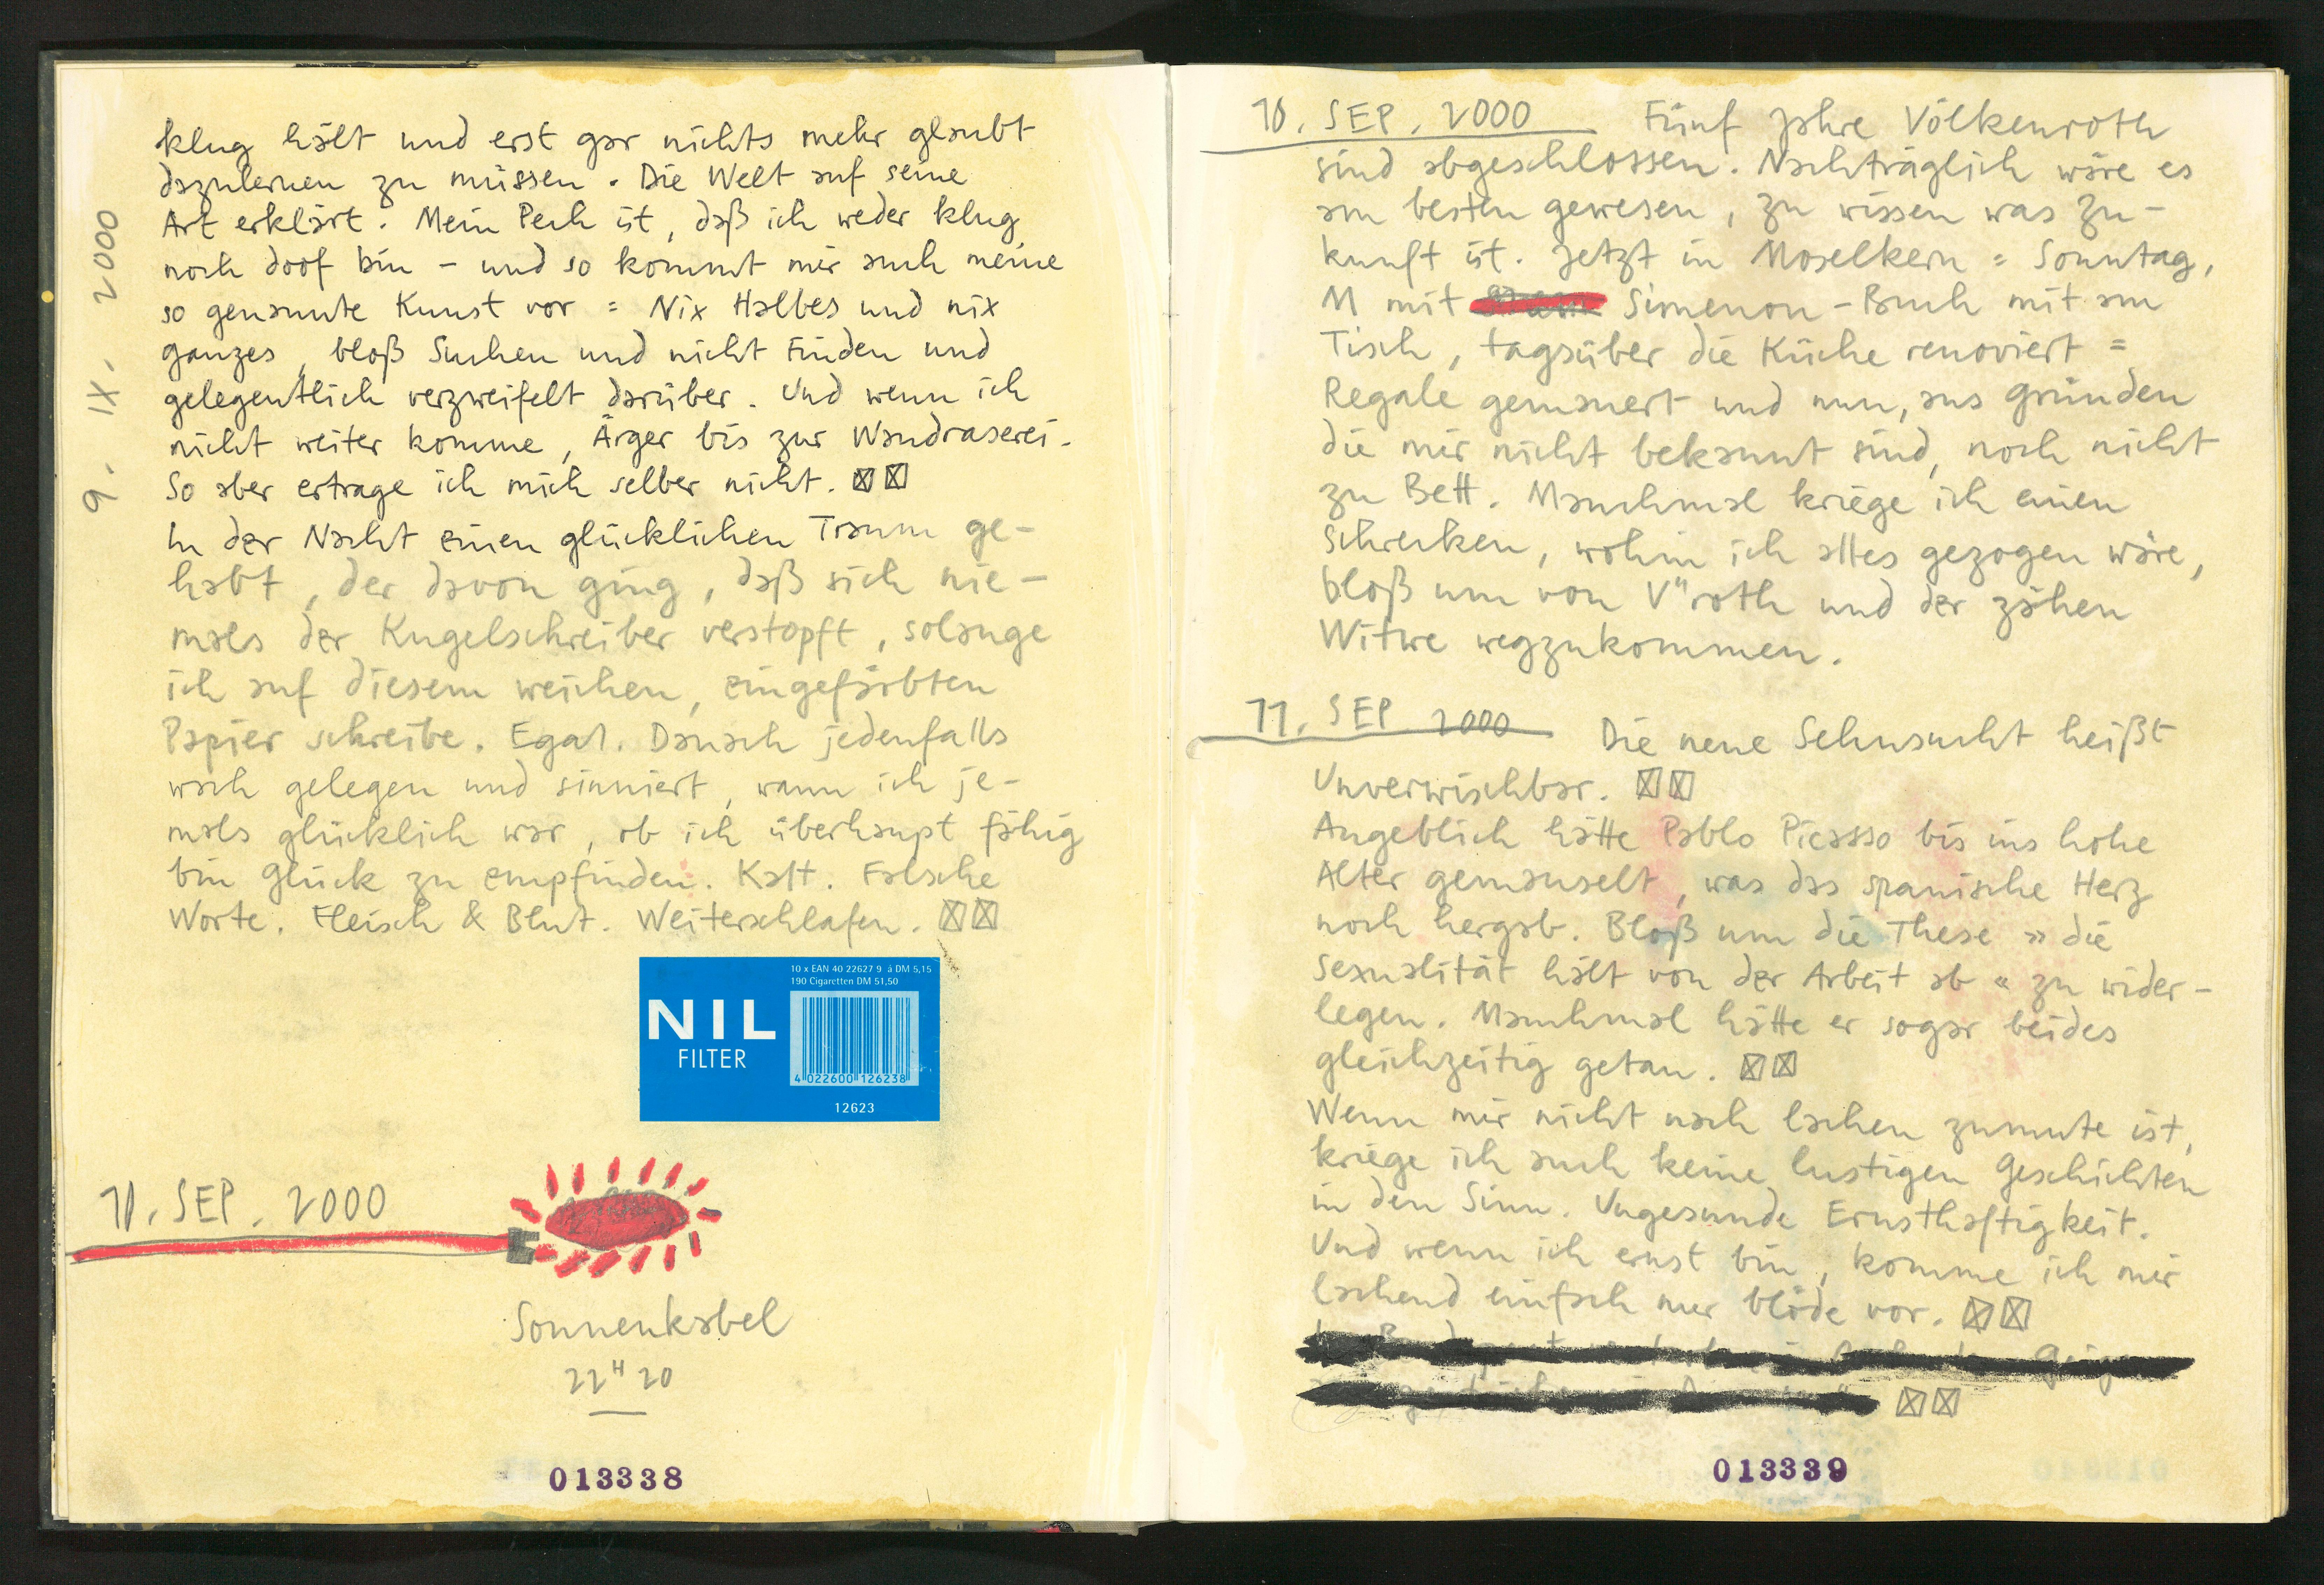 9. IX. 2000
klug hält und erst gar nichts mehr glaubt
dazulernen zu müssen. Die Welt auf seine
Art erklärt. Mein Pech ist, daß ich weder klug
noch doof bin – und so kommt mir auch meine
so genannte Kunst vor = Nix Halbes und nix
ganzes, bloß Suchen und nicht Finden und
gelegentlich verzweifelt darüber. Und wenn ich
nicht weiter komme, Ärger bis zur Wandraserei.
So aber ertrage ich mich selber nicht. ☒☒
In der Nacht einen glücklichen Traum ge-
habt, der davon ging, daß sich nie-
mals der Kugelschreiber verstopft, solange
ich auf diesem weichen, eingefärbten
Papier schreibe. Egal. Danach jedenfalls
wach gelegen und sinniert, wann ich je-
mals glücklich war, ob ich überhaupt fähig
bin Glück zu empfinden. Kalt. Falsche
Worte. Fleisch & Blut. Weiterschlafen. ☒☒
10 x EAN 40 22627 9 á DM 5,15
190 Cigaretten DM 51,50
NIL
FILTER
4 022600 126238
12623
10. SEP. 2000
Sonnenkabel
22 H 20
013338
10. SEP. 2000 Fünf Jahre Völkenroth
sind abgeschlossen. Nachträglich wäre es
am besten gewesen, zu wissen was Zu-
kunft ist. Jetzt in Moselkern = Sonntag,
M mit Simenon-Buch mit am
Tisch, tagsüber die Küche renoviert =
Regale gemauert und nun, aus Gründen
die mir nicht bekannt sind, noch nicht
zu Bett. Manchmal kriege ich einen
Schrecken, wohin ich alles gezogen wäre,
bloß um von V"roth und der zähen
Witwe wegzukommen.
11. SEP 2000 Die neue Sehnsucht heißt
Unverwischbar. ☒☒
Angeblich hätte Pablo Picasso bis ins hohe
Alter gemauselt, was das spanische Herz
noch hergab. Bloß um die These » die
Sexualität hält von der Arbeit ab « zu wider-
legen. Manchmal hätte er sogar beides
gleichzeitig getan. ☒☒
Wenn mir nicht nach lachen zumute ist,
kriege ich auch keine lustigen Geschichten
in den Sinn. Ungesunde Ernsthaftigkeit.
Und wenn ich ernst bin, komme ich mir
lachend einfach nur blöde vor. ☒☒
☒☒
013339